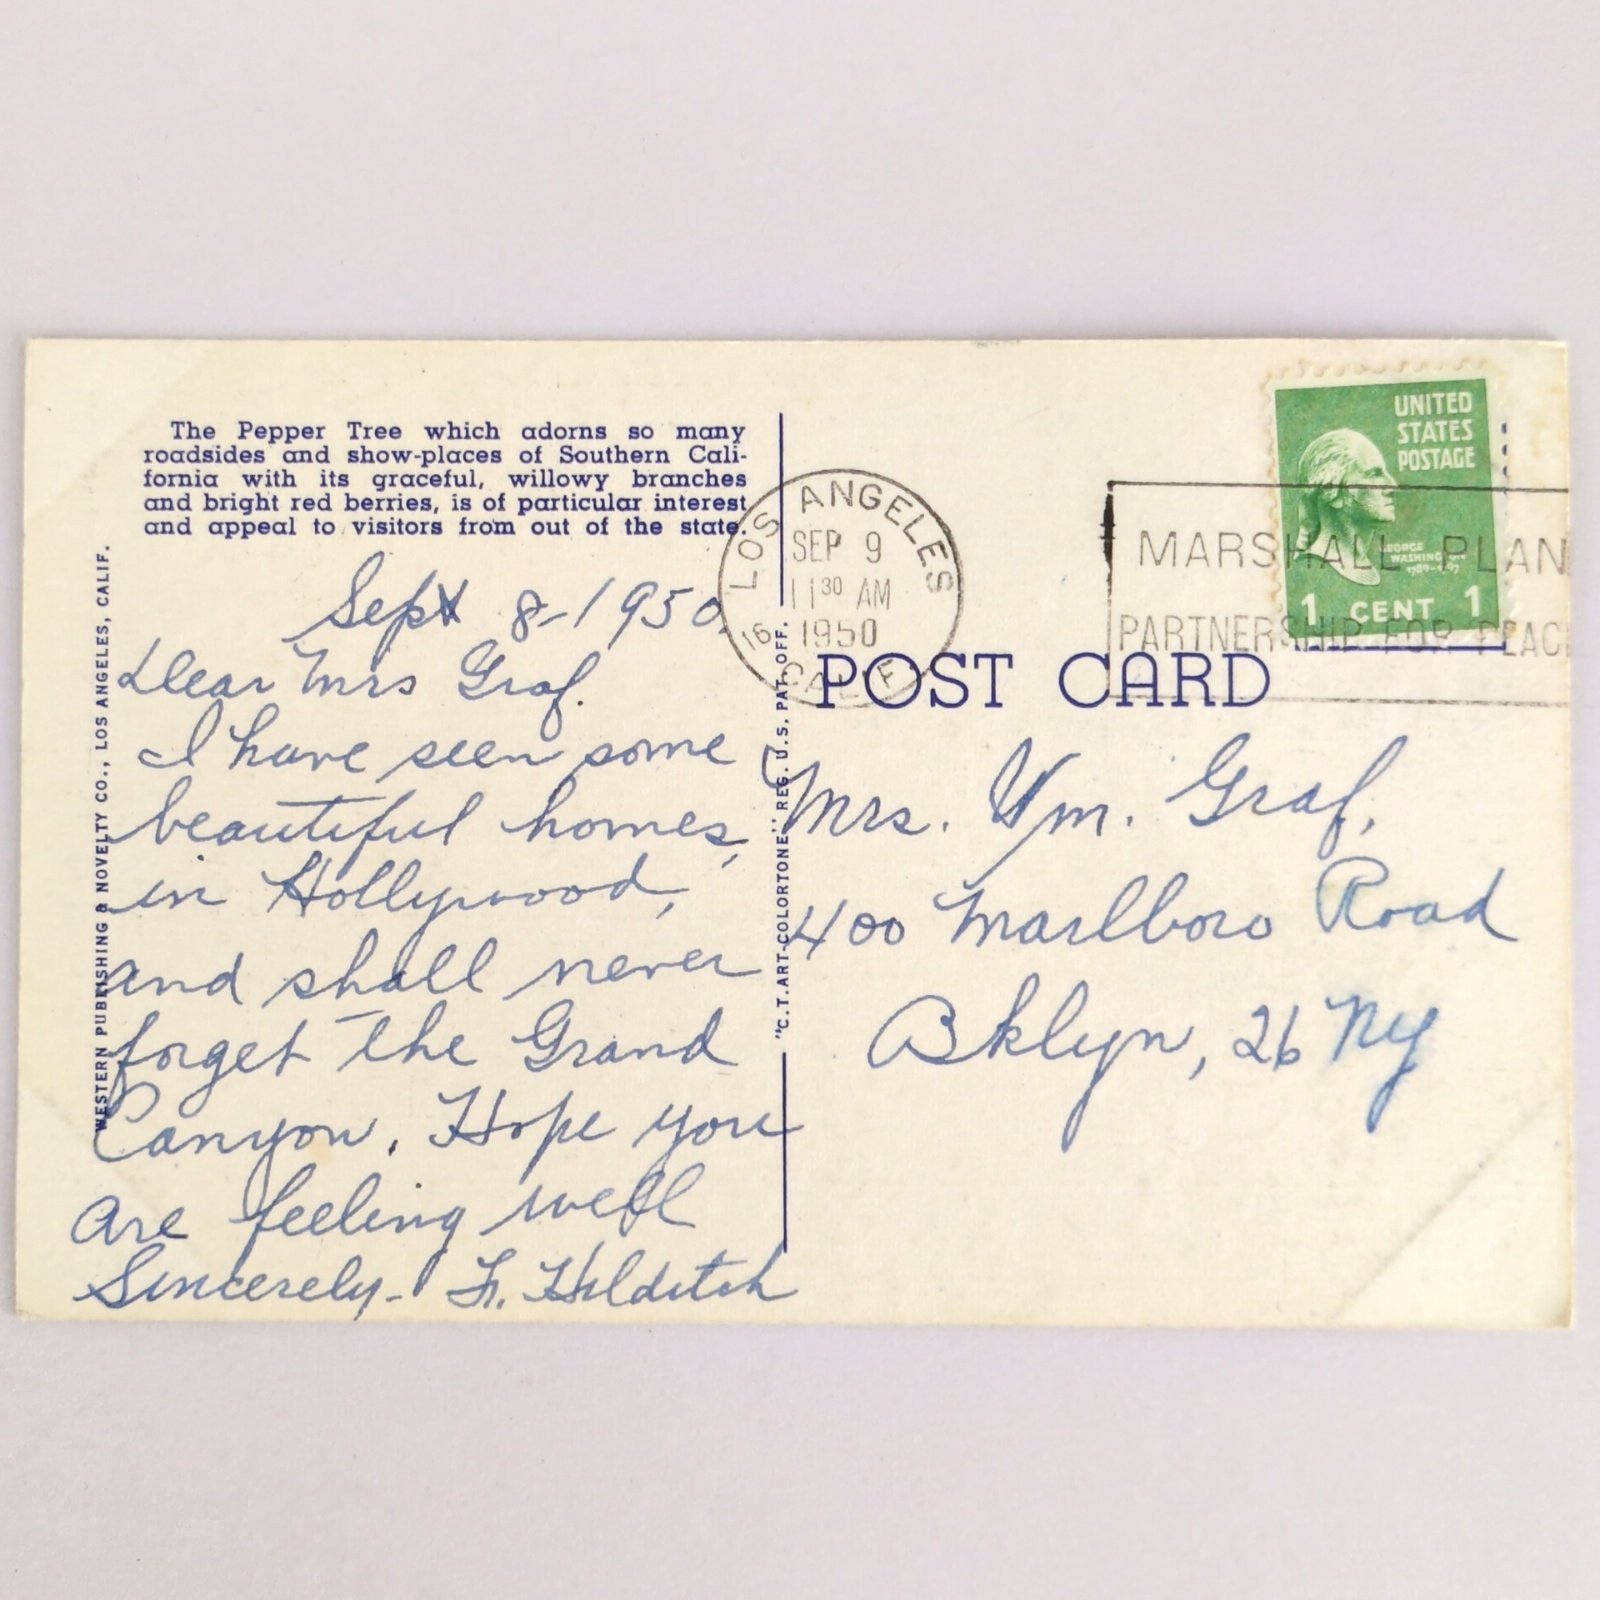 The Pepper Tree which adorns so many
roadsides and show-places of Southern Cali-
fornia with its graceful, willowy branches
and bright red berries, is of particular interest
and appeal to visitors from out of the state.
WESTERN PUBLISHING & NOVELTY CO., LOS ANGELES, CALIF.
Sept 8-1950
Dear Mrs Graf.
I have seen some
beautiful homes,
in Hollywood,
and shall never
forget the Grand
Canyon. Hope you
are feeling well
Sincerely- F. Hilditch
"C.T. ART-COLORTONE" REG. U.S. PAT. OFF.
LOS ANGELES
SEP 9
11 30 AM
1950
16
CALIF
UNITED
STATES
POSTAGE
GEORGE
WASHINGTON
1789-1797
1 CENT 1
MARSHALL PLAN
PARTNERSHIP FOR PEACE
POST CARD
Mrs. Wm. Graf,
400 Marlboro Road
Bklyn, 26 NY